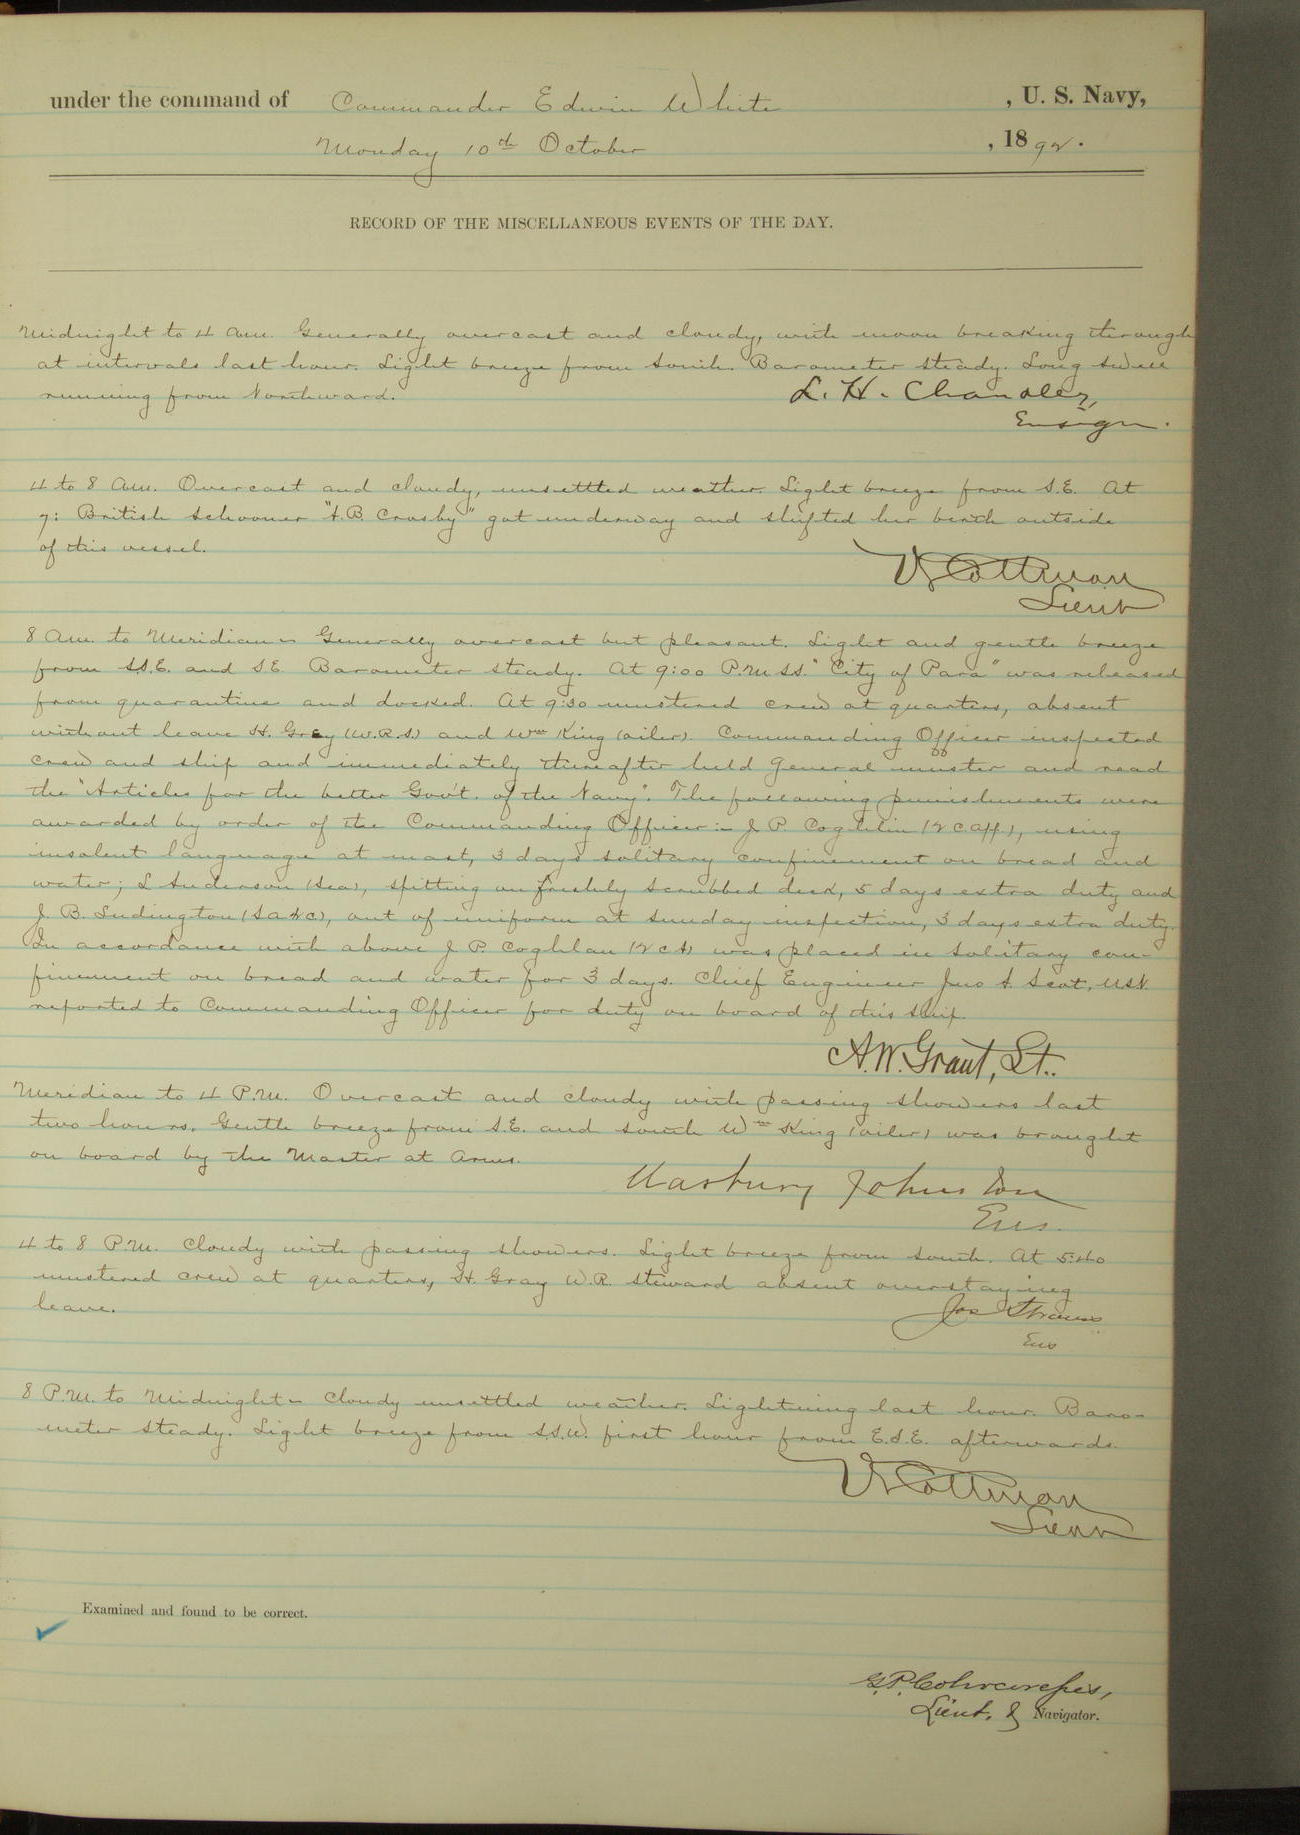 under the command of Commander Edwin White , U. S. Navy,
Monday 10th October , 1892.
RECORD OF THE MISCELLANEOUS EVENTS OF THE DAY.
Midnight to 4 a.m. Generally overcast and cloudy, with moon breaking through
at intervals last hour. Light breeze from South. Barometer steady. Long swell
running from Northward.
L. H. Chandler,
Ensign.
4 to 8 a.m. Overcast and cloudy, unsettled weather. Light breeze from S.E. At
7: British Schooner "A.B. Crosby" got underway and shifted her berth outside
of this vessel.
V. Cottman
Lieut
8 a.m. to Meridian - Generally overcast but pleasant. Light and gentle breeze
from S.S.E. and S.E. Barometer steady. At 9:00 P.M. S.S. "City of Para" was released
from quarantine and docked. At 9:30 mustered crew at quarters, absent
without leave H. Gray (W.R.S.) and Wm King (oiler). Commanding Officer inspected
crew and ship and immediately thereafter held general muster and read
the "Articles for the better Gov't. of the Navy". The following punishments were
awarded by order of the Commanding Officer:- J. P. Coghlin (2 c. app.), using
insolent language at mast, 3 days solitary confinement on bread and
water; L Anderson (Sea), spitting on freshly scrubbed deck, 5 days extra duty and
J. B. Ludington out of uniform at Sunday inspection, 3 days extra duty.
In accordance with above J. P. Coghlan (2 c A) was placed in solitary con-
finement on bread and water for 3 days. Chief Engineer Jno A Scot, USN.
reported to Commanding Officer for duty on board of this ship.
A. W. Grant, Lt..
Meridian to 4 P.M. Overcast and cloudy with passing showers last
two hours. Gentle breeze from S.E. and South Wm King (oiler) was brought
on board by the Master at Arms.
Marbury Johnston
Ens.
4 to 8 P.M. Cloudy with passing showers. Light breeze from South. At 5:40
mustered crew at quarters, H. Gray W.R. steward absent overstaying
leave.
Jos Strauss
Ens
8 P.M. to Midnight - Cloudy unsettled weather. Lightning last hour. Baro-
meter steady. Light breeze from S.S.W. first hour from E.S.E. afterwards.
V. Cottman
Lieut
Examined and found to be correct.
G. P. Colvocoresses,
Lieut. & Navigator.